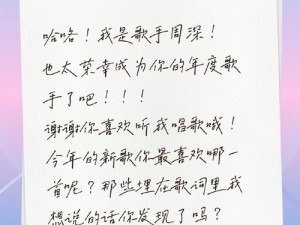 哈咯！我是歌手周深！
也太荣幸成为你的年度歌
手了吧！！！
谢谢你喜欢听我唱歌哦！
今年的新歌你最喜欢哪一
首呢？那些埋在歌词里我
想说的话你发现了吗？